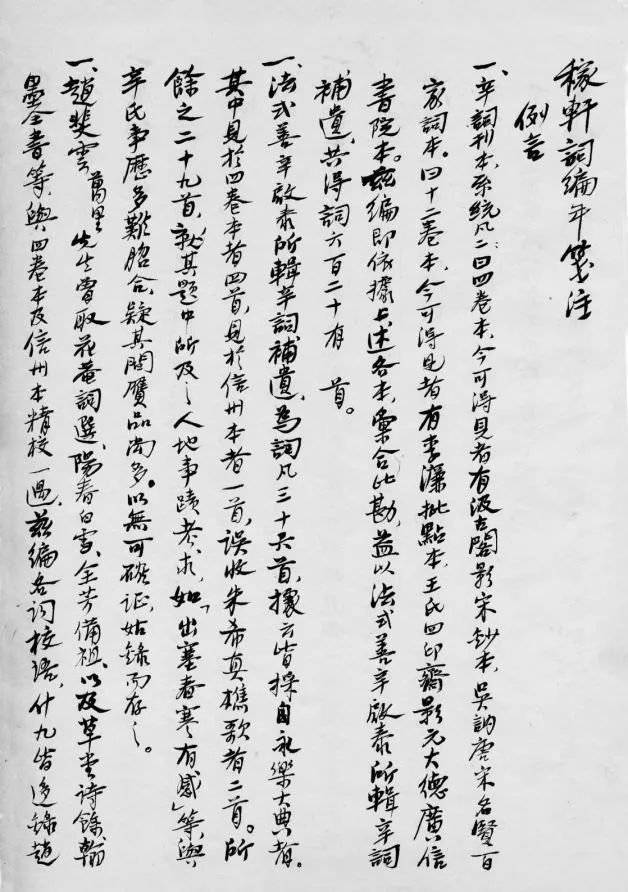 稼軒詞編年箋注
例言
一、辛詞刊本，系統凡二：曰四卷本，今可得見者有汲古閣影宋鈔本，吳訥唐宋名賢百
家詞本。曰十二卷本，今可得見者有李濂批點本，王氏四印齋影元大德廣信
書院本。茲編即依據上述各本，彙合比勘，益以法式善辛啟泰所輯辛詞
補遺，共得詞六百二十有　首。
一、法式善辛啟泰所輯辛詞補遺，為詞凡三十六首，據云皆採自永樂大典者。
其中見於四卷本者四首，見於信州本者一首，誤收朱希真樵歌者二首。所
餘之二十九首，就其題中所及之人地事蹟考求，如「出塞春寒有感」等，與
辛氏事歷多難脗合，疑其間贗品尚多。以無可碻証，姑錄而存之。
一、趙斐雲萬里先生曾取花菴詞選、陽春白雪、全芳備祖、以及草堂詩餘、翰
墨全書等，與四卷本及信州本精校一過，茲編各詞校語，什九皆迻錄趙